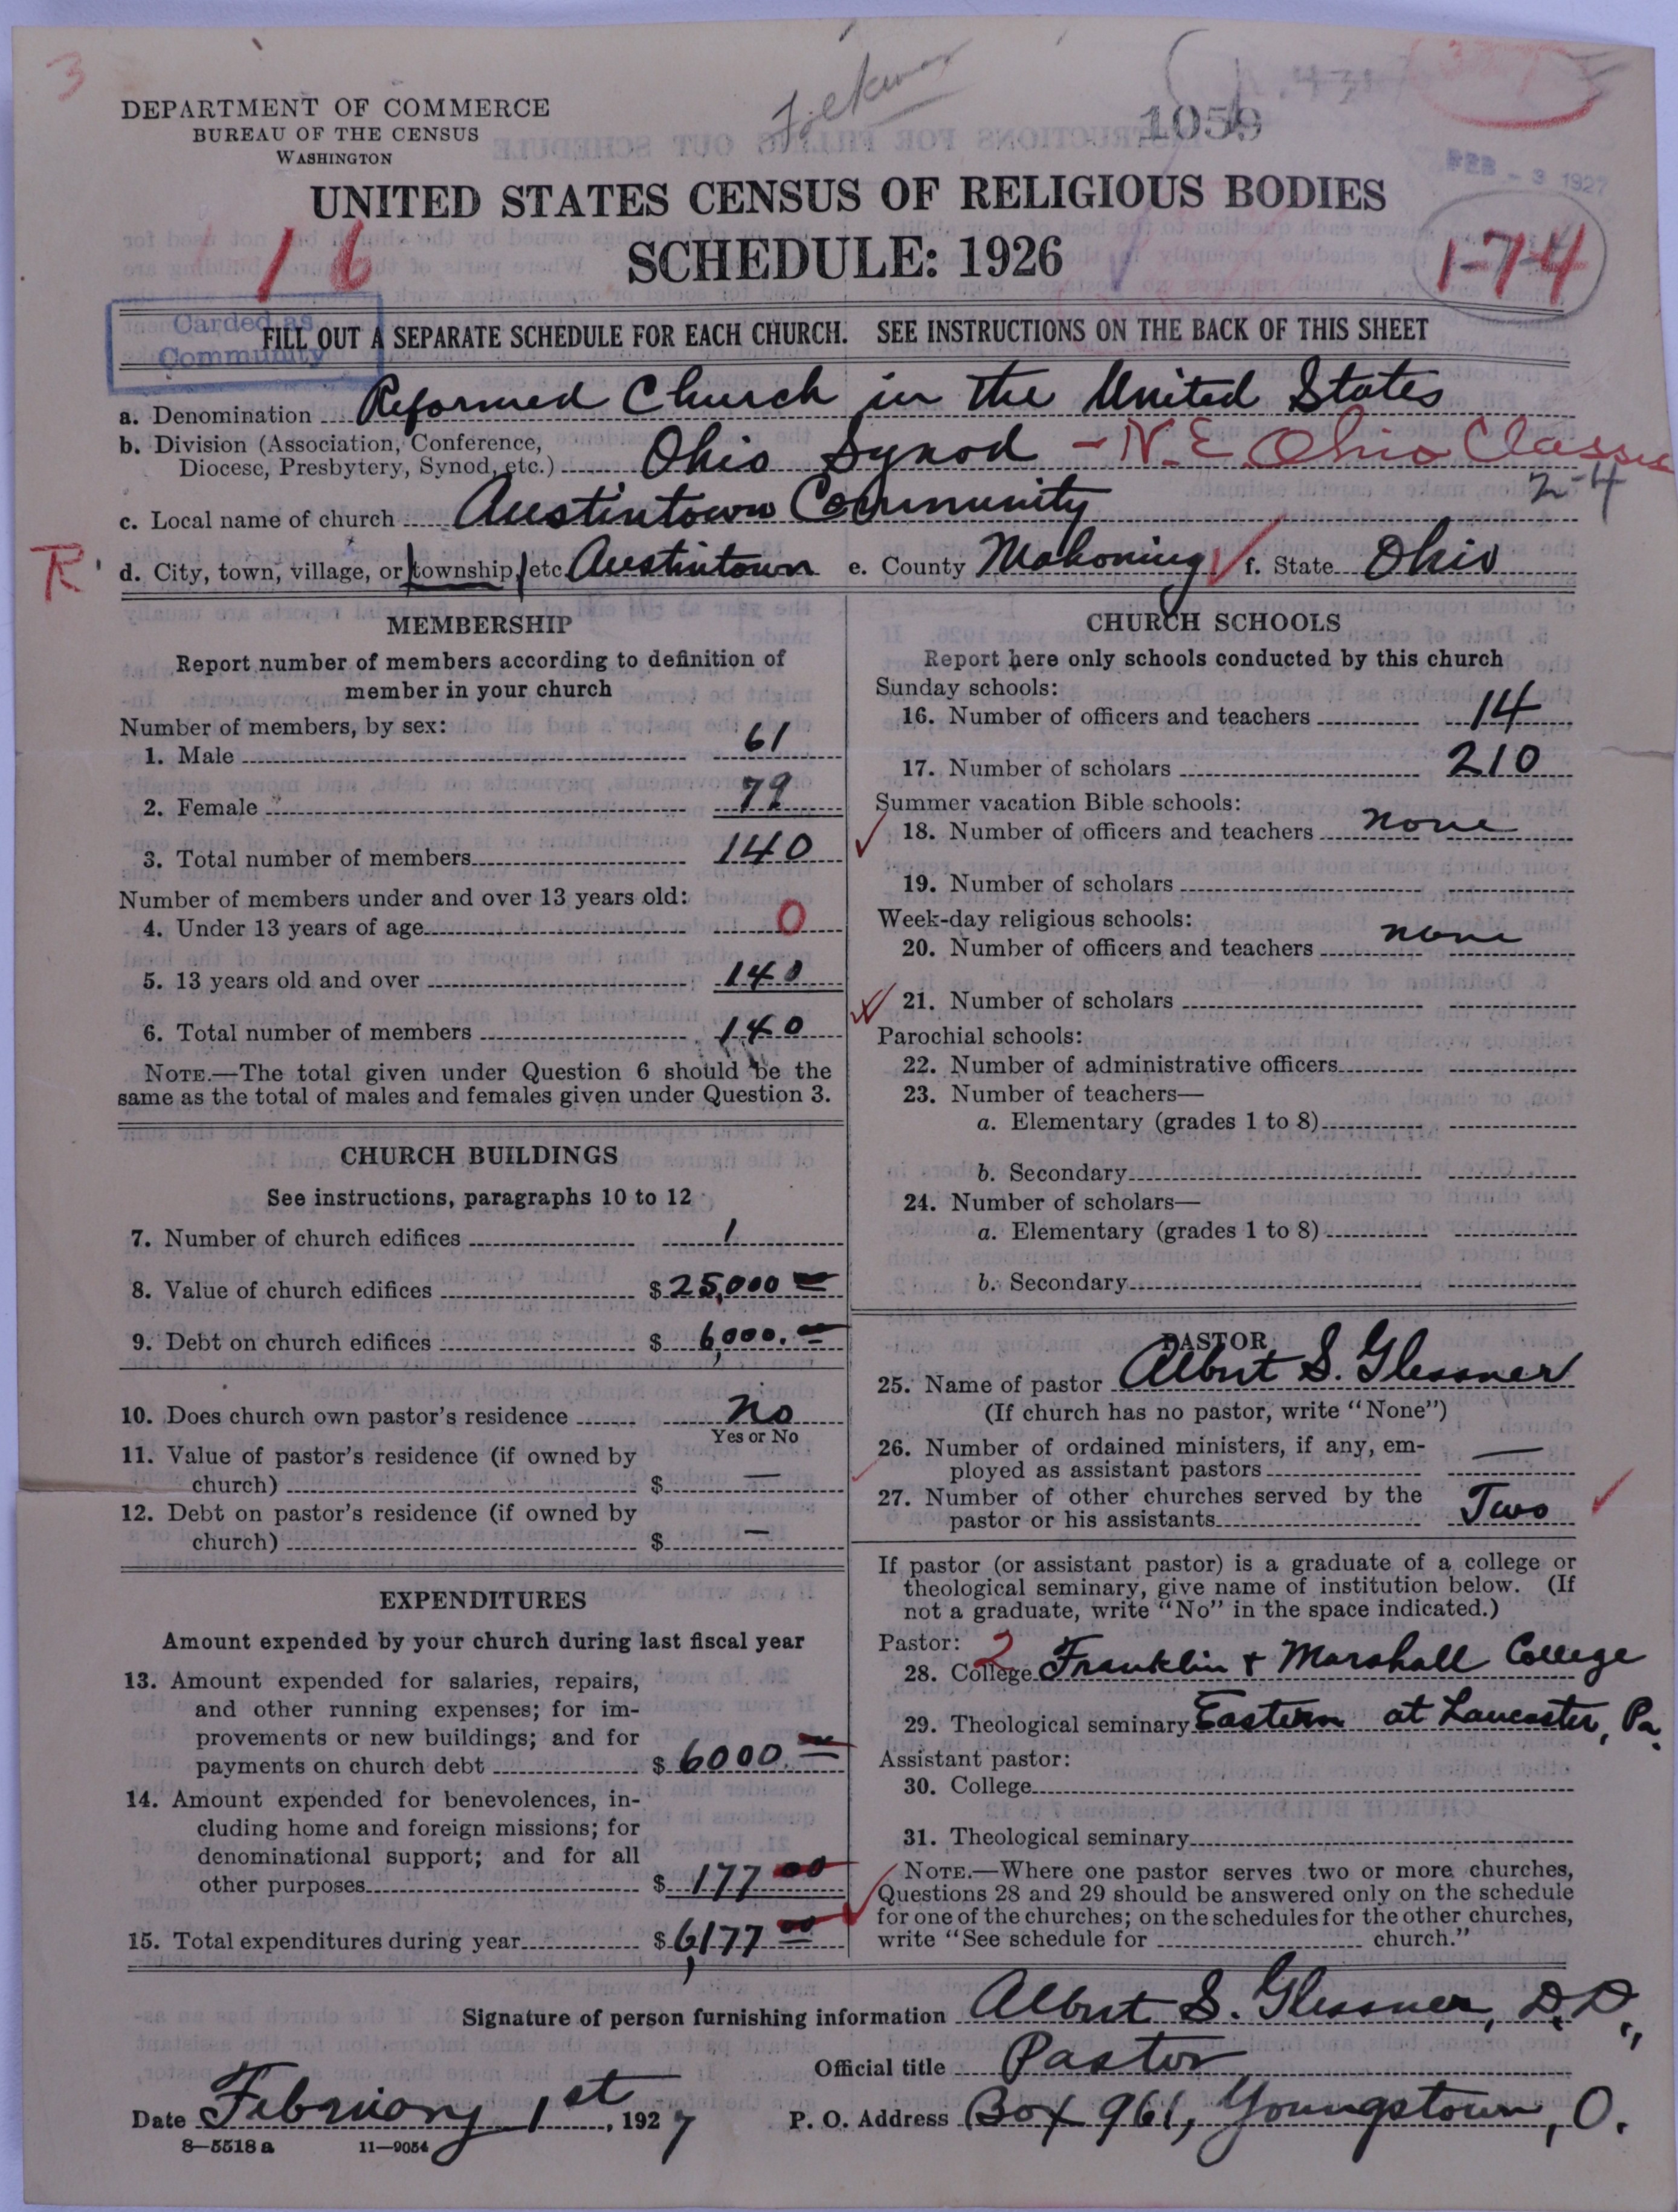 3
DEPARTMENT OF COMMERCE
BUREAU OF THE CENSUS
WASHINGTON
1059
FEB - 3 1927
UNITED STATES CENSUS OF RELIGIOUS BODIES
SCHEDULE: 1926
16
1-74
Carded as
Community
FILL OUT A SEPARATE SCHEDULE FOR EACH CHURCH. SEE INSTRUCTIONS ON THE BACK OF THIS SHEET
a. Denomination Reformed Church in the United States
b. Division (Association, Conference,
Diocese, Presbytery, Synod, etc.) Ohio Synod - N.E. Ohio Classis
2-4
c. Local name of church Austintown Community
R
d. City, town, village, or township, etc. Austintown e. County Mahoning f. State Ohio
MEMBERSHIP
Report number of members according to definition of
member in your church
Number of members, by sex:
1. Male 61
2. Female 79
3. Total number of members 140
Number of members under and over 13 years old:
4. Under 13 years of age 0
5. 13 years old and over 140
6. Total number of members 140
NOTE.—The total given under Question 6 should be the
same as the total of males and females given under Question 3.
CHURCH BUILDINGS
See instructions, paragraphs 10 to 12
7. Number of church edifices 1
8. Value of church edifices $25,000
9. Debt on church edifices $ 6,000.
10. Does church own pastor's residence No
Yes or No
11. Value of pastor's residence (if owned by
church) $ —
12. Debt on pastor's residence (if owned by
church) $ —
EXPENDITURES
Amount expended by your church during last fiscal year
13. Amount expended for salaries, repairs,
and other running expenses; for im-
provements or new buildings; and for
payments on church debt $ 6000.
14. Amount expended for benevolences, in-
cluding home and foreign missions; for
denominational support; and for all
other purposes $ 177 00
15. Total expenditures during year $ 6,177 00
CHURCH SCHOOLS
Report here only schools conducted by this church
Sunday schools:
16. Number of officers and teachers 14
17. Number of scholars 210
Summer vacation Bible schools:
18. Number of officers and teachers none
19. Number of scholars
Week-day religious schools:
20. Number of officers and teachers none
21. Number of scholars
Parochial schools:
22. Number of administrative officers
23. Number of teachers—
a. Elementary (grades 1 to 8)
b. Secondary
24. Number of scholars—
a. Elementary (grades 1 to 8)
b. Secondary
PASTOR
25. Name of pastor Albert S. Glessner
(If church has no pastor, write "None")
26. Number of ordained ministers, if any, em-
ployed as assistant pastors —
27. Number of other churches served by the
pastor or his assistants Two
If pastor (or assistant pastor) is a graduate of a college or
theological seminary, give name of institution below. (If
not a graduate, write "No" in the space indicated.)
Pastor: 2
28. College Franklin & Marshall College
29. Theological seminary Eastern at Lancaster, Pa.
Assistant pastor:
30. College
31. Theological seminary
NOTE.—Where one pastor serves two or more churches,
Questions 28 and 29 should be answered only on the schedule
for one of the churches; on the schedules for the other churches,
write "See schedule for church."
Signature of person furnishing information Albert S. Glessner, D.D.,
Official title Pastor
Date February 1st, 1927 P. O. Address Box 961, Youngstown, O.
8—5518 a 11—9054